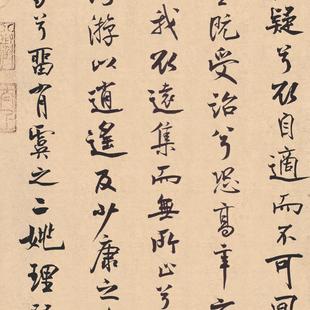 疑兮欲自適而不可
既受詒兮恐高辛
我欲遠集而無所止兮
游以逍遙及少康之
兮留有虞之二姚理